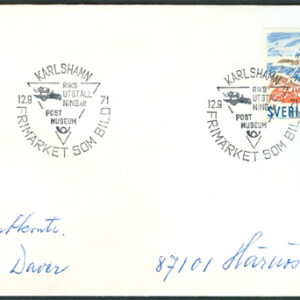 KARLSHAMN
RIKS
UTSTÄLL
NINGAR
12.9 71
POST
MUSEUM
FRIMÄRKET SOM BILD
KARLSHAMN
RIKS
UTSTÄLL
NINGAR
12.9
POST
MUSEUM
FRIMÄRKET SOM BILD
SVERI
Daver
87101 Härnös